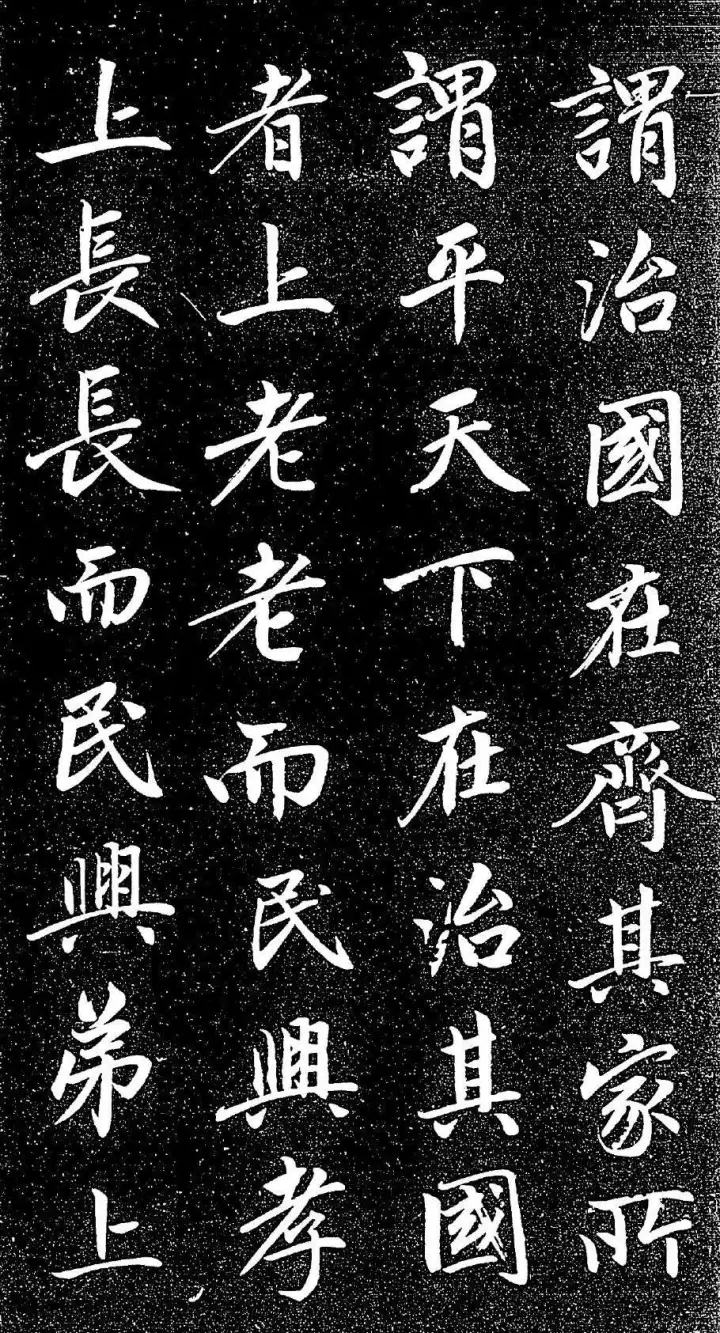 謂治國在齊其家所
謂平天下在治其國
者上老老而民興孝
上長長而民興弟上